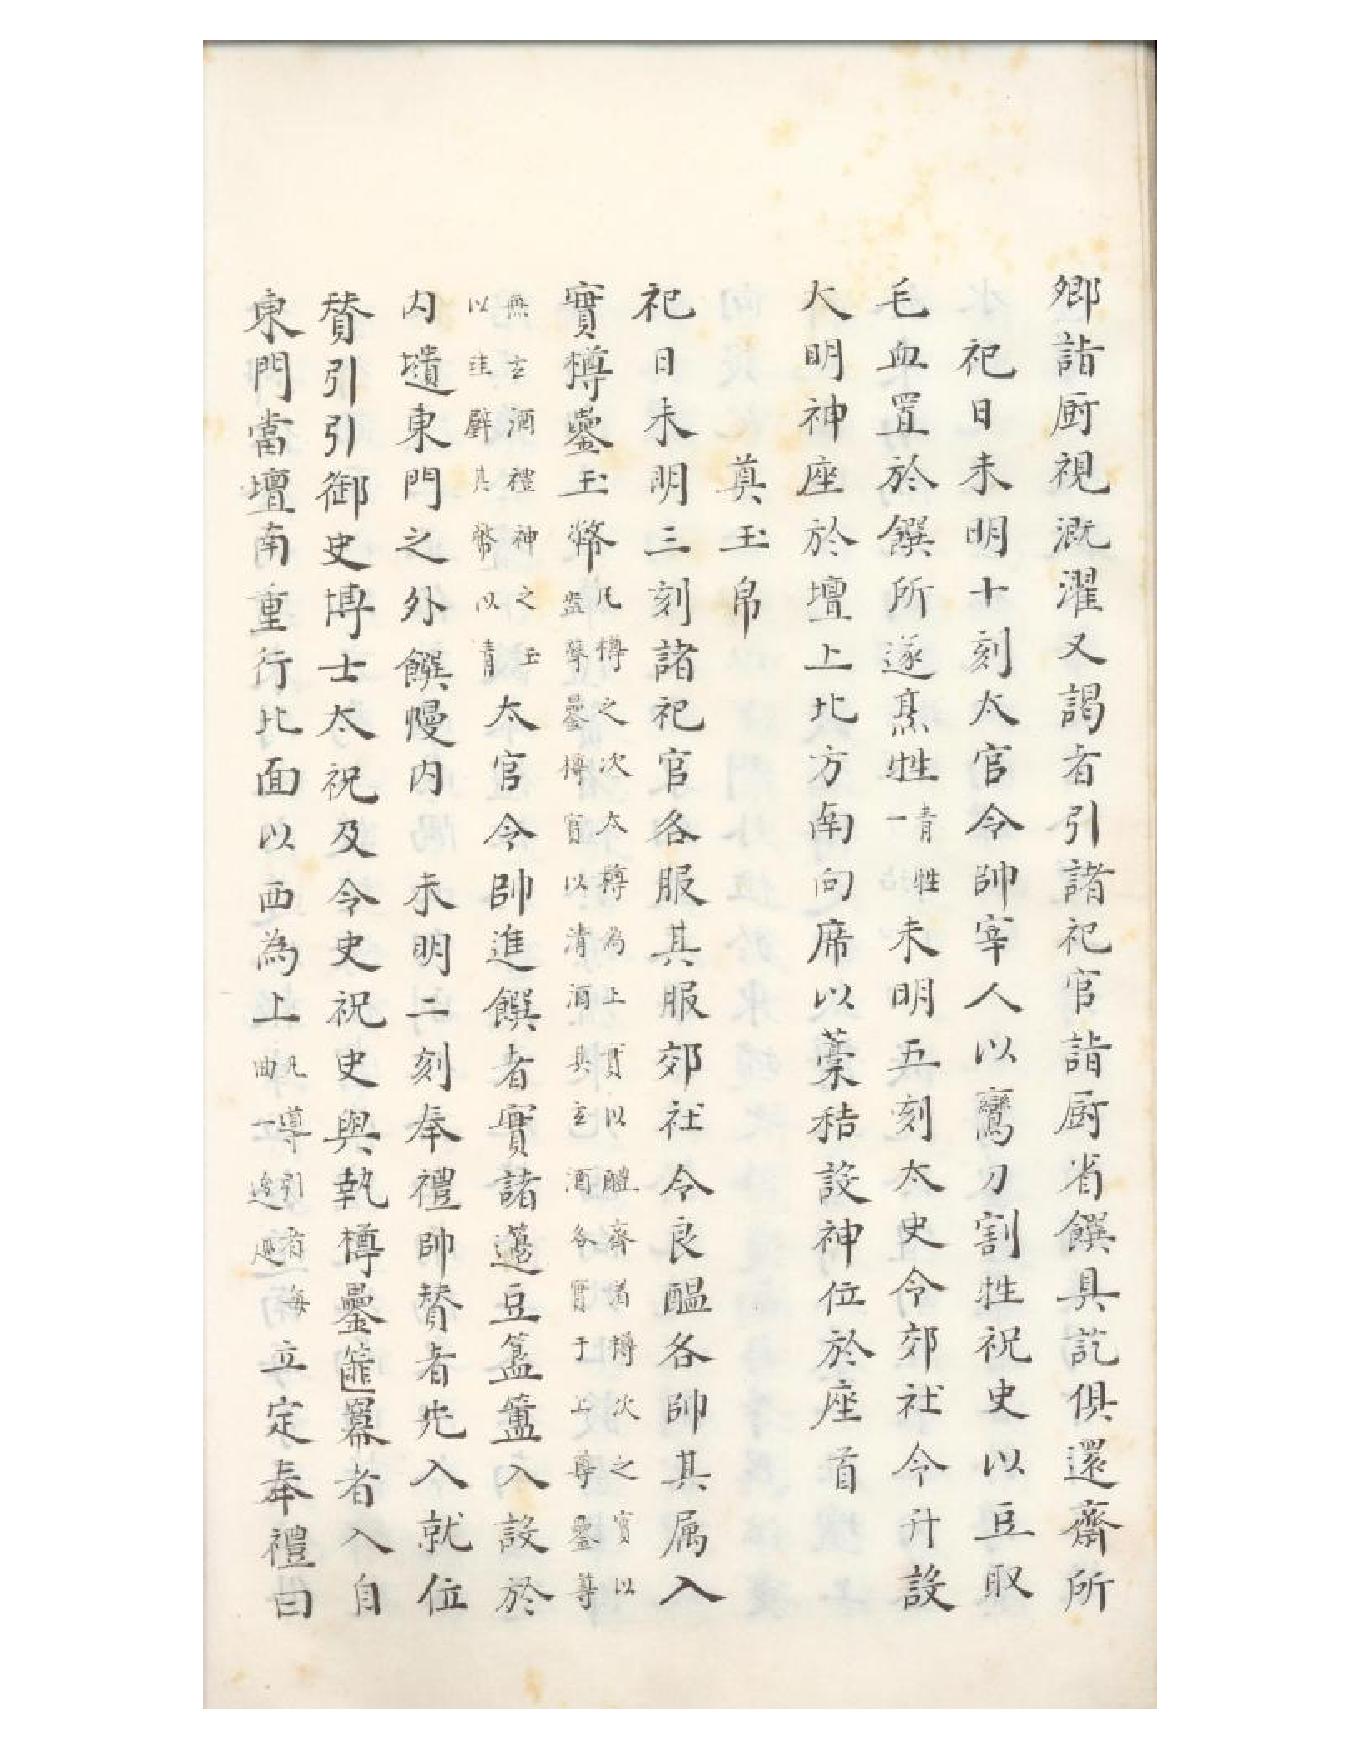 卿詣厨視溉濯又謁者引諸祀官詣厨省饌具訖俱還齋所
祀日未明十刻太官令帥宰人以鸞刀割牲祝史以豆取
毛血置於饌所遂烹牲青牲一未明五刻太史令郊社令升設
大明神座於壇上北方南向席以藁秸設神位於座首
奠玉帛
祀日未明三刻諸祀官各服其服郊社令良醞各帥其属入
實樽罍玉幣凡樽之次太樽為上實以醴齊著樽次之實以
盎齊罍樽實以清酒其玄酒各實于上尊罍尊
無玄酒禮神之玉
以珪壁其幣以青太官令帥進饌者實諸籩豆簋簠入設於
内壝東門之外饌幔内未明二刻奉禮帥賛者先入就位
賛引引御史博士太祝及令史祝史與執樽罍篚羃者入自
東門當壇南重行北面以西為上凡導引者每
曲一逡廵立定奉禮曰